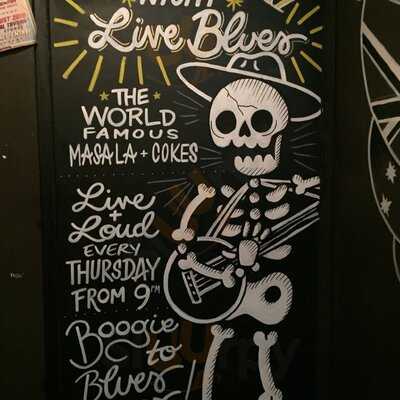 NIGHT
Live Blues
THE
WORLD
FAMOUS
MASALA + COKES
Live
+
Loud
EVERY
THURSDAY
FROM 9PM
Boogie
to
Blues